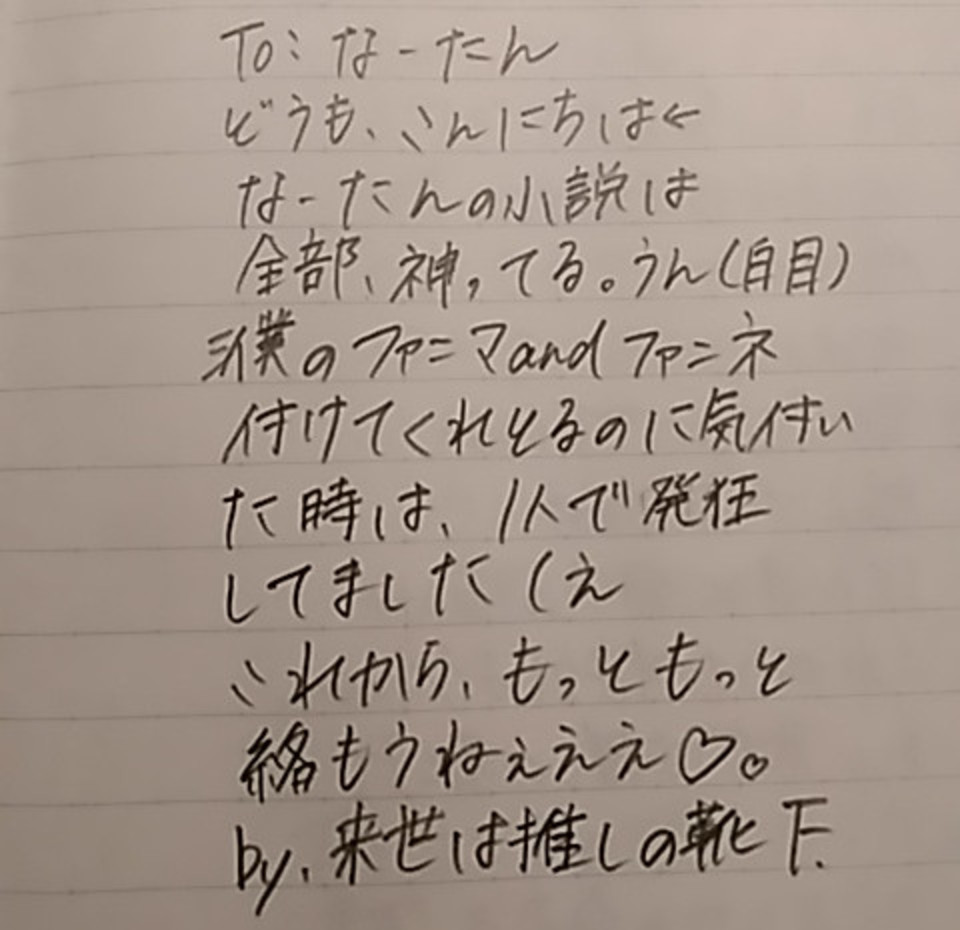 To: なーたん
どうも、こんにちは←
なーたんの小説は
全部、神ってる。うん(白目)
僕のファニマandファンネ
付けてくれとるのに気付い
た時は、1人で発狂
してました(え
これから、もっともっと
絡もうねぇええ♡。♡
by.来世は推しの靴下.